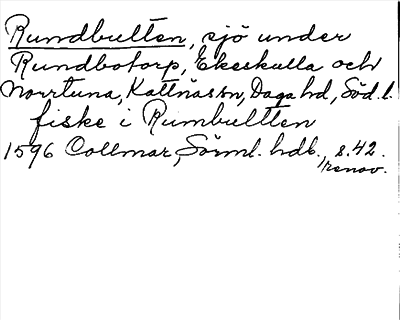 Rundbullen, sjö under
Rundbotorp, Ekeskulla och
Norrtuna, Kattnäs sn, Daga hd, Söd. l.
fiske i Rumbultten
1596 Collmar, Sörml. hdl., s. 42.
renov.